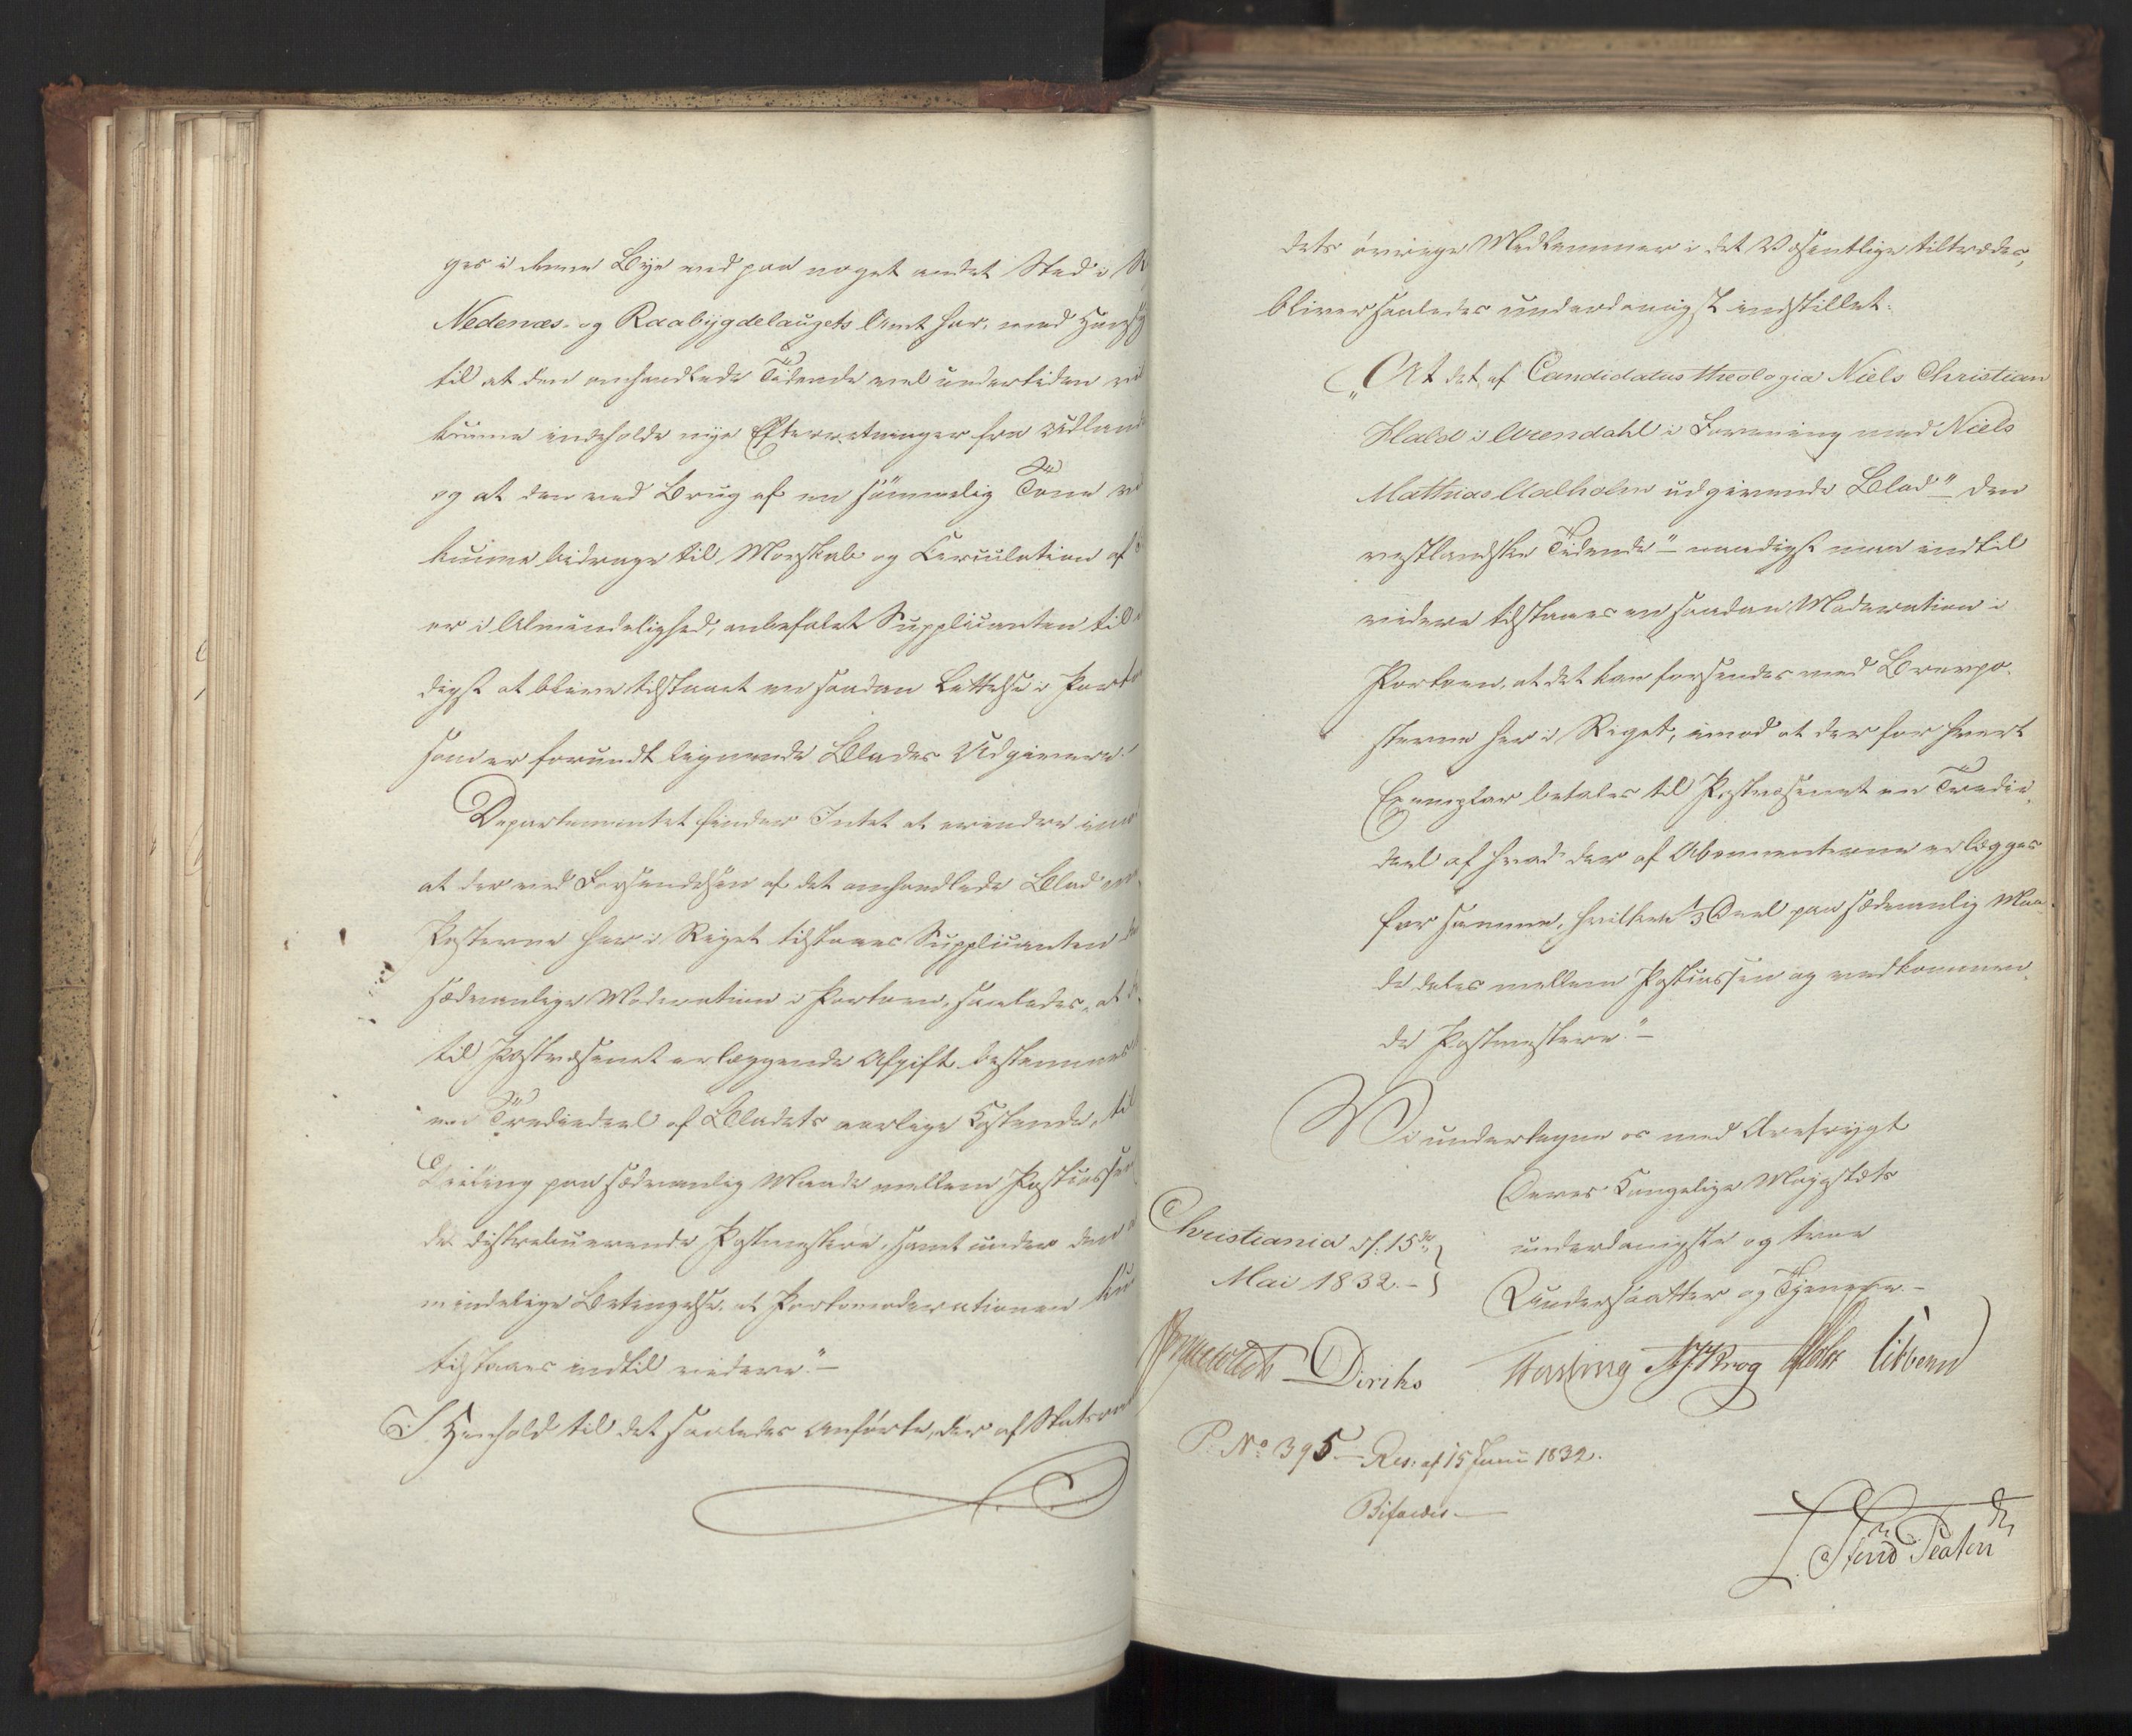 ges i denne Bye end paa noget andet Sted i
Nedenæs- og Raabygdelaugets Amt har, med Hensy
til at den omhandlede Tidende vel undertiden vil
kunne indeholde nye Efterretninger fra Udland
og at den ved Brug af en sömmelig Tone vil
kunne bidrage til Morskab og Circulation af
er i Almindelighed, anbefalet Supplicanten til
digst at blive tilstaaet en saadan Lettelse i Porto
som er forundt lignende Blades Udgivere.
Departementet finder Intet at erindre imod
at der ved Forsendelsen af det omhandlede Blad med
Posterne her i Riget tilstaaes Supplicanten den
sædvanlige Moderation i Portoen, saaledes, at
til Postvæsenet erlæggende Afgift bestemmes
en Trediedeel af Bladets aarlige Kostende, til
Deeling paa sædvanlig Maade mellem Postcassen
de distribuerende Postmestere, samt under den
mindelige Betingelse, at Portomoderationen kun
tilstaaes indtil videre."—
I Henhold til det saaledes Anförte, der af Statsraa
dets övrige Medlemmer i det Væsentlige tiltrædes,
bliver saaledes underdanigst indstillet:
„At det, af Candidatus theologia Niels Christian
Hald i Arendahl i Forening med Niels
Mathias Aalholm udgivende Blad" den
vestlandske Tidende"- naadigst maa indtil
videre tilstaaes en saadan Moderation i
Portoen, at det kan forsendes med Brevpo-
sterne her i Riget, imod at der for hvert
Exemplar betales til Postvæsenet en Tredie-
deel af hvad der af Abonnenterne erlægges
for samme, hvilken 1/3 Deel paa sædvanlig Maa-
de deles mellem Postcassen og vedkommen-
de Postmestere."—
Vi undertegne os med Ærefrygt
Deres Kongelige Majestæts
Christiania d: 15de
underdanigste og troe
Mai 1832.-
Undersaatter og Tjenere.-
Diriks Fasting Krog Holst Vibe
P. No 395 — Res: af 15 Juni 1832.
Bifaldes —